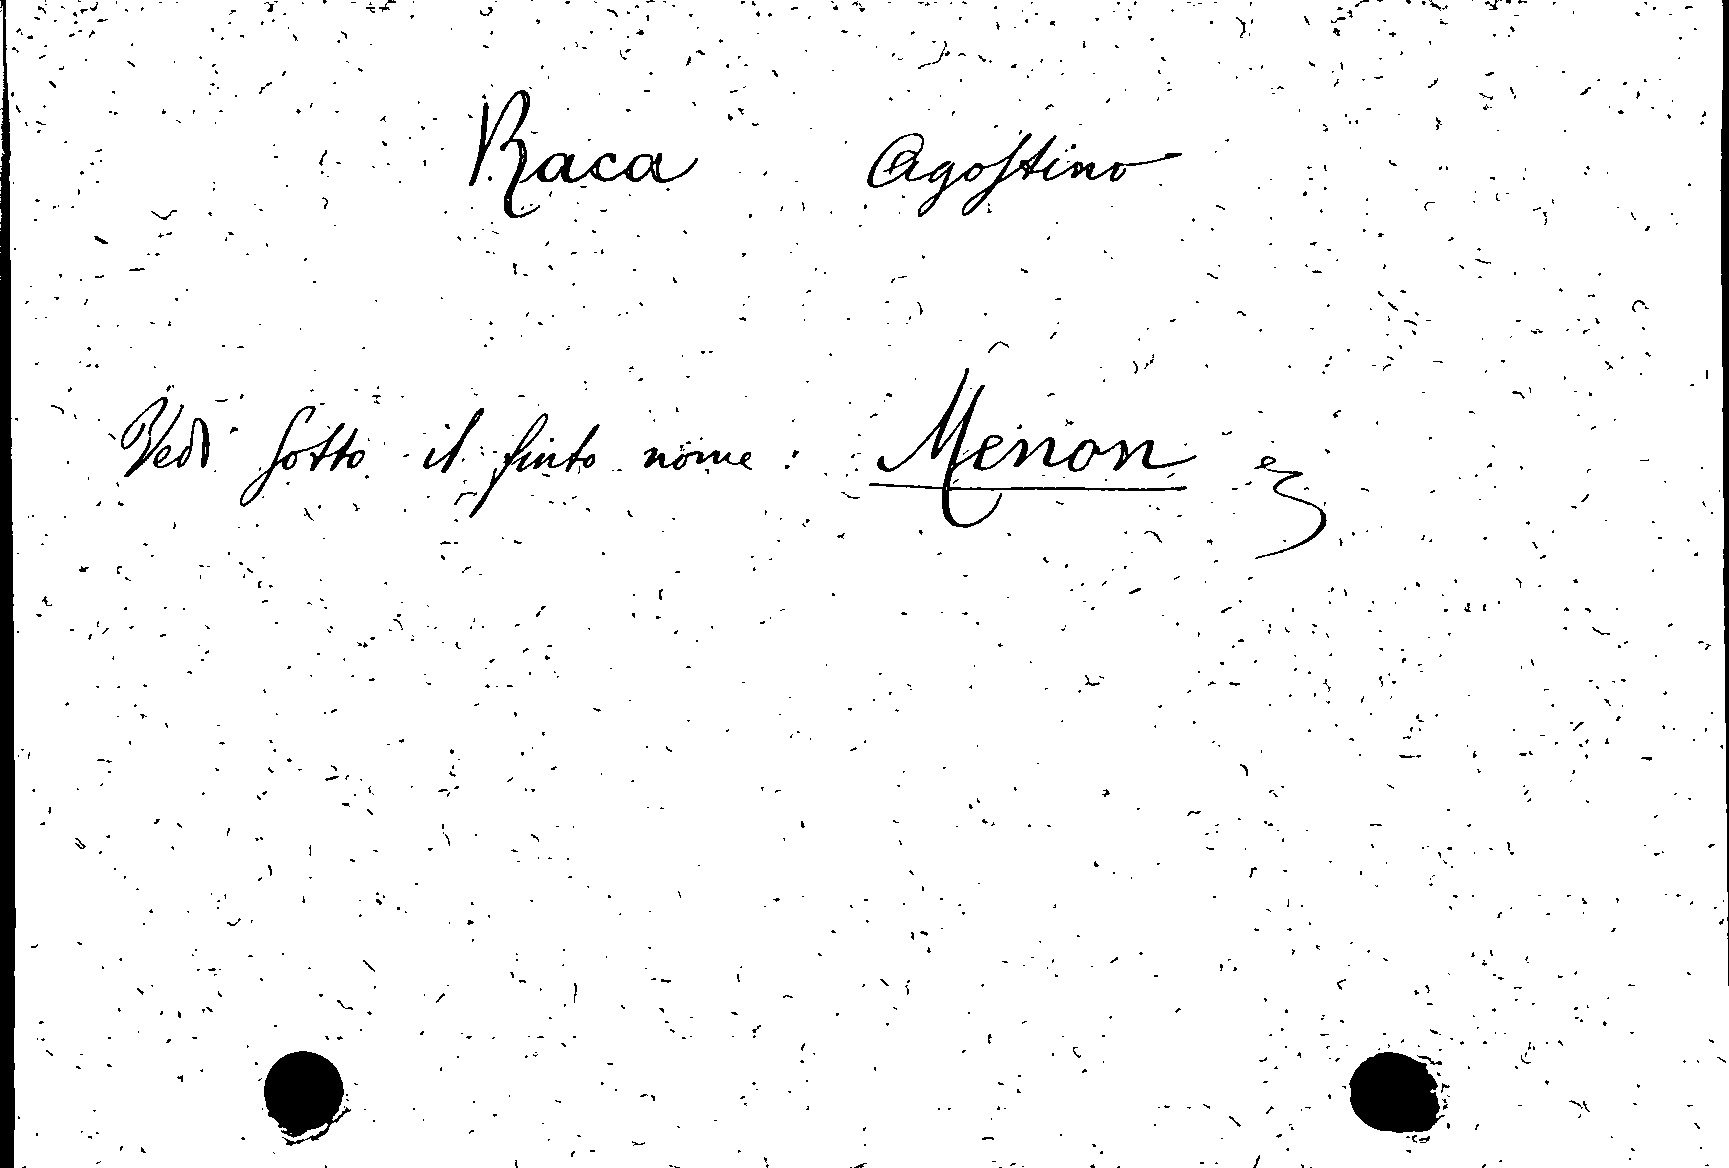 Raca Agostino
Vedi sotto il finto nome: Menon